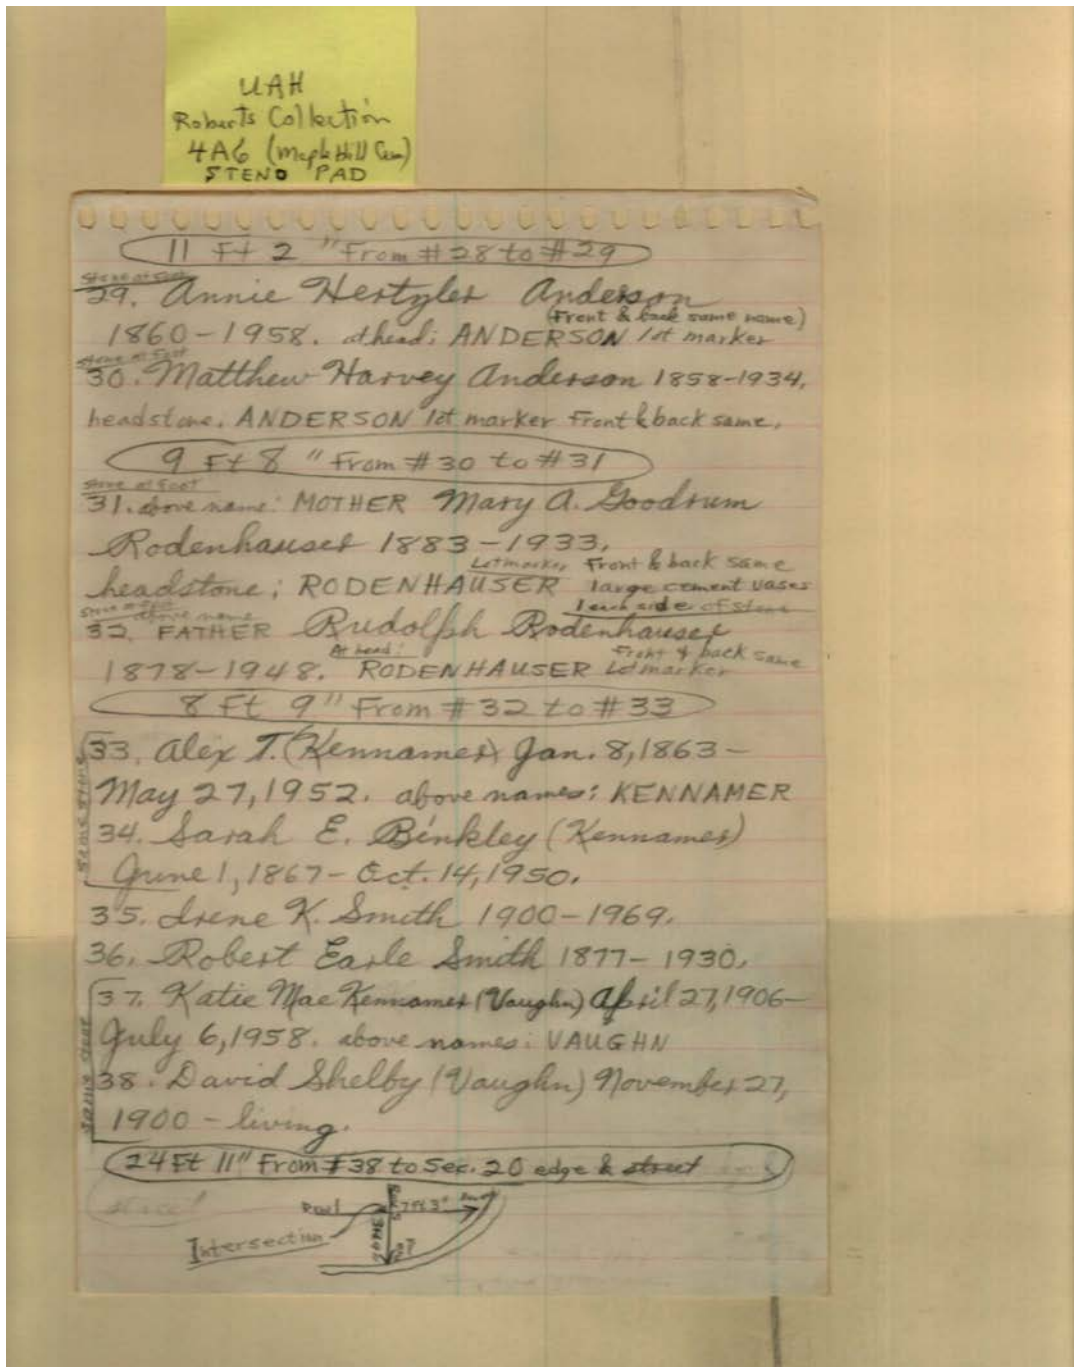 UAH
Roberts Collection
4A6 (Maple Hill Cem)
STENO PAD
11 Ft 2 " From #28 to #29
stone at foot
29. Annie Hertzler Anderson
(Front & back same name)
1860-1958. at head: ANDERSON lot marker
stone at foot
30. Matthew Harvey Anderson 1858-1934,
headstone. ANDERSON lot marker Front & back same.
9 Ft 8 " From #30 to #31
stone at foot
31. above name: MOTHER Mary A. Goodrum
Rodenhauser 1883-1933.
Lot marker Front & back same
headstone; RODENHAUSER large cement vases
1 each side of stone
stone at foot above name
32. FATHER Rudolph Rodenhauser
At head: Front & back same
1878-1948. RODENHAUSER Lot marker
8 Ft 9" From #32 to #33
33. Alex T. (Kennamer) Jan. 8, 1863-
May 27, 1952. above names: KENNAMER
same stone
34. Sarah E. Binkley (Kennamer)
June 1, 1867- Oct. 14, 1950.
35. Irene K. Smith 1900-1969.
36. Robert Earle Smith 1877-1930.
37. Katie Mae Kennamer (Vaughn) April 27, 1906-
July 6, 1958. above names: VAUGHN
same stone
38. David Shelby (Vaughn) November 27,
1900 - living.
24 Ft 11" From #38 to Sec. 20 edge & street
7 Ft 3"
Intersection